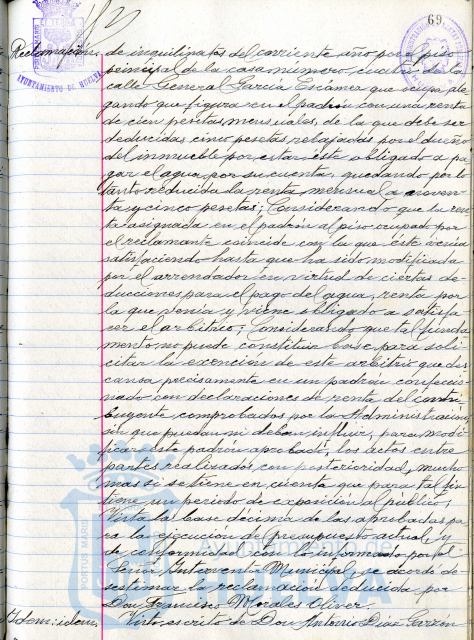 69.
AYUNTAMIENTO DE HUELVA
Reclamación, de inquilinatos del corriente año por el piso
principal de la casa número, cuatro de la
calle General García Escamez que ocupa, ale
gando que figura en el padrón con una renta
de cien pesetas mensuales, de la que debe ser
deducidas cinco pesetas rebajadas por el dueño
del inmueble por estar este obligado a pa
gar el agua, por su cuenta, quedando por lo
tanto reducida la renta mensual a noven
ta y cinco pesetas; Considerando que la ren
ta asignada en el padrón al piso ocupado por
el reclamante coincide con la que éste venía
satisfaciendo hasta que ha sido modificada
por el arrendador en virtud de ciertas de
ducciones para el pago del agua, renta por
la que venía y viene obligado a satisfa
ser el arbitrio; Considerando que tal funda
mento no puede constituir base para soli
citar la exención de este arbitrio que des
cansa precisamente en un padrón confeccio
nado con declaraciones de renta del contri
buyente comprobados por la Administración,
sin que puedan ni deban influir, para modi
ficar este padrón aprobado, los actos entre
partes realizados con posterioridad, mucho
mas si se tiene en cuenta que para tal fin
tiene un periodo de exposición al público;
Vista la base décima de las aprobadas pa
ra la ejecución del presupuesto actual y
de conformidad con lo informado por el
Señor Interventor Municipal, se acordó de
sestimar la reclamación deducida por
Don Francisco Morales Oliver.
Idem: idem, Visto, escrito de Don Antonio Díaz Garzón
PORTUS MARIS
Ayuntamiento de
HUELVA